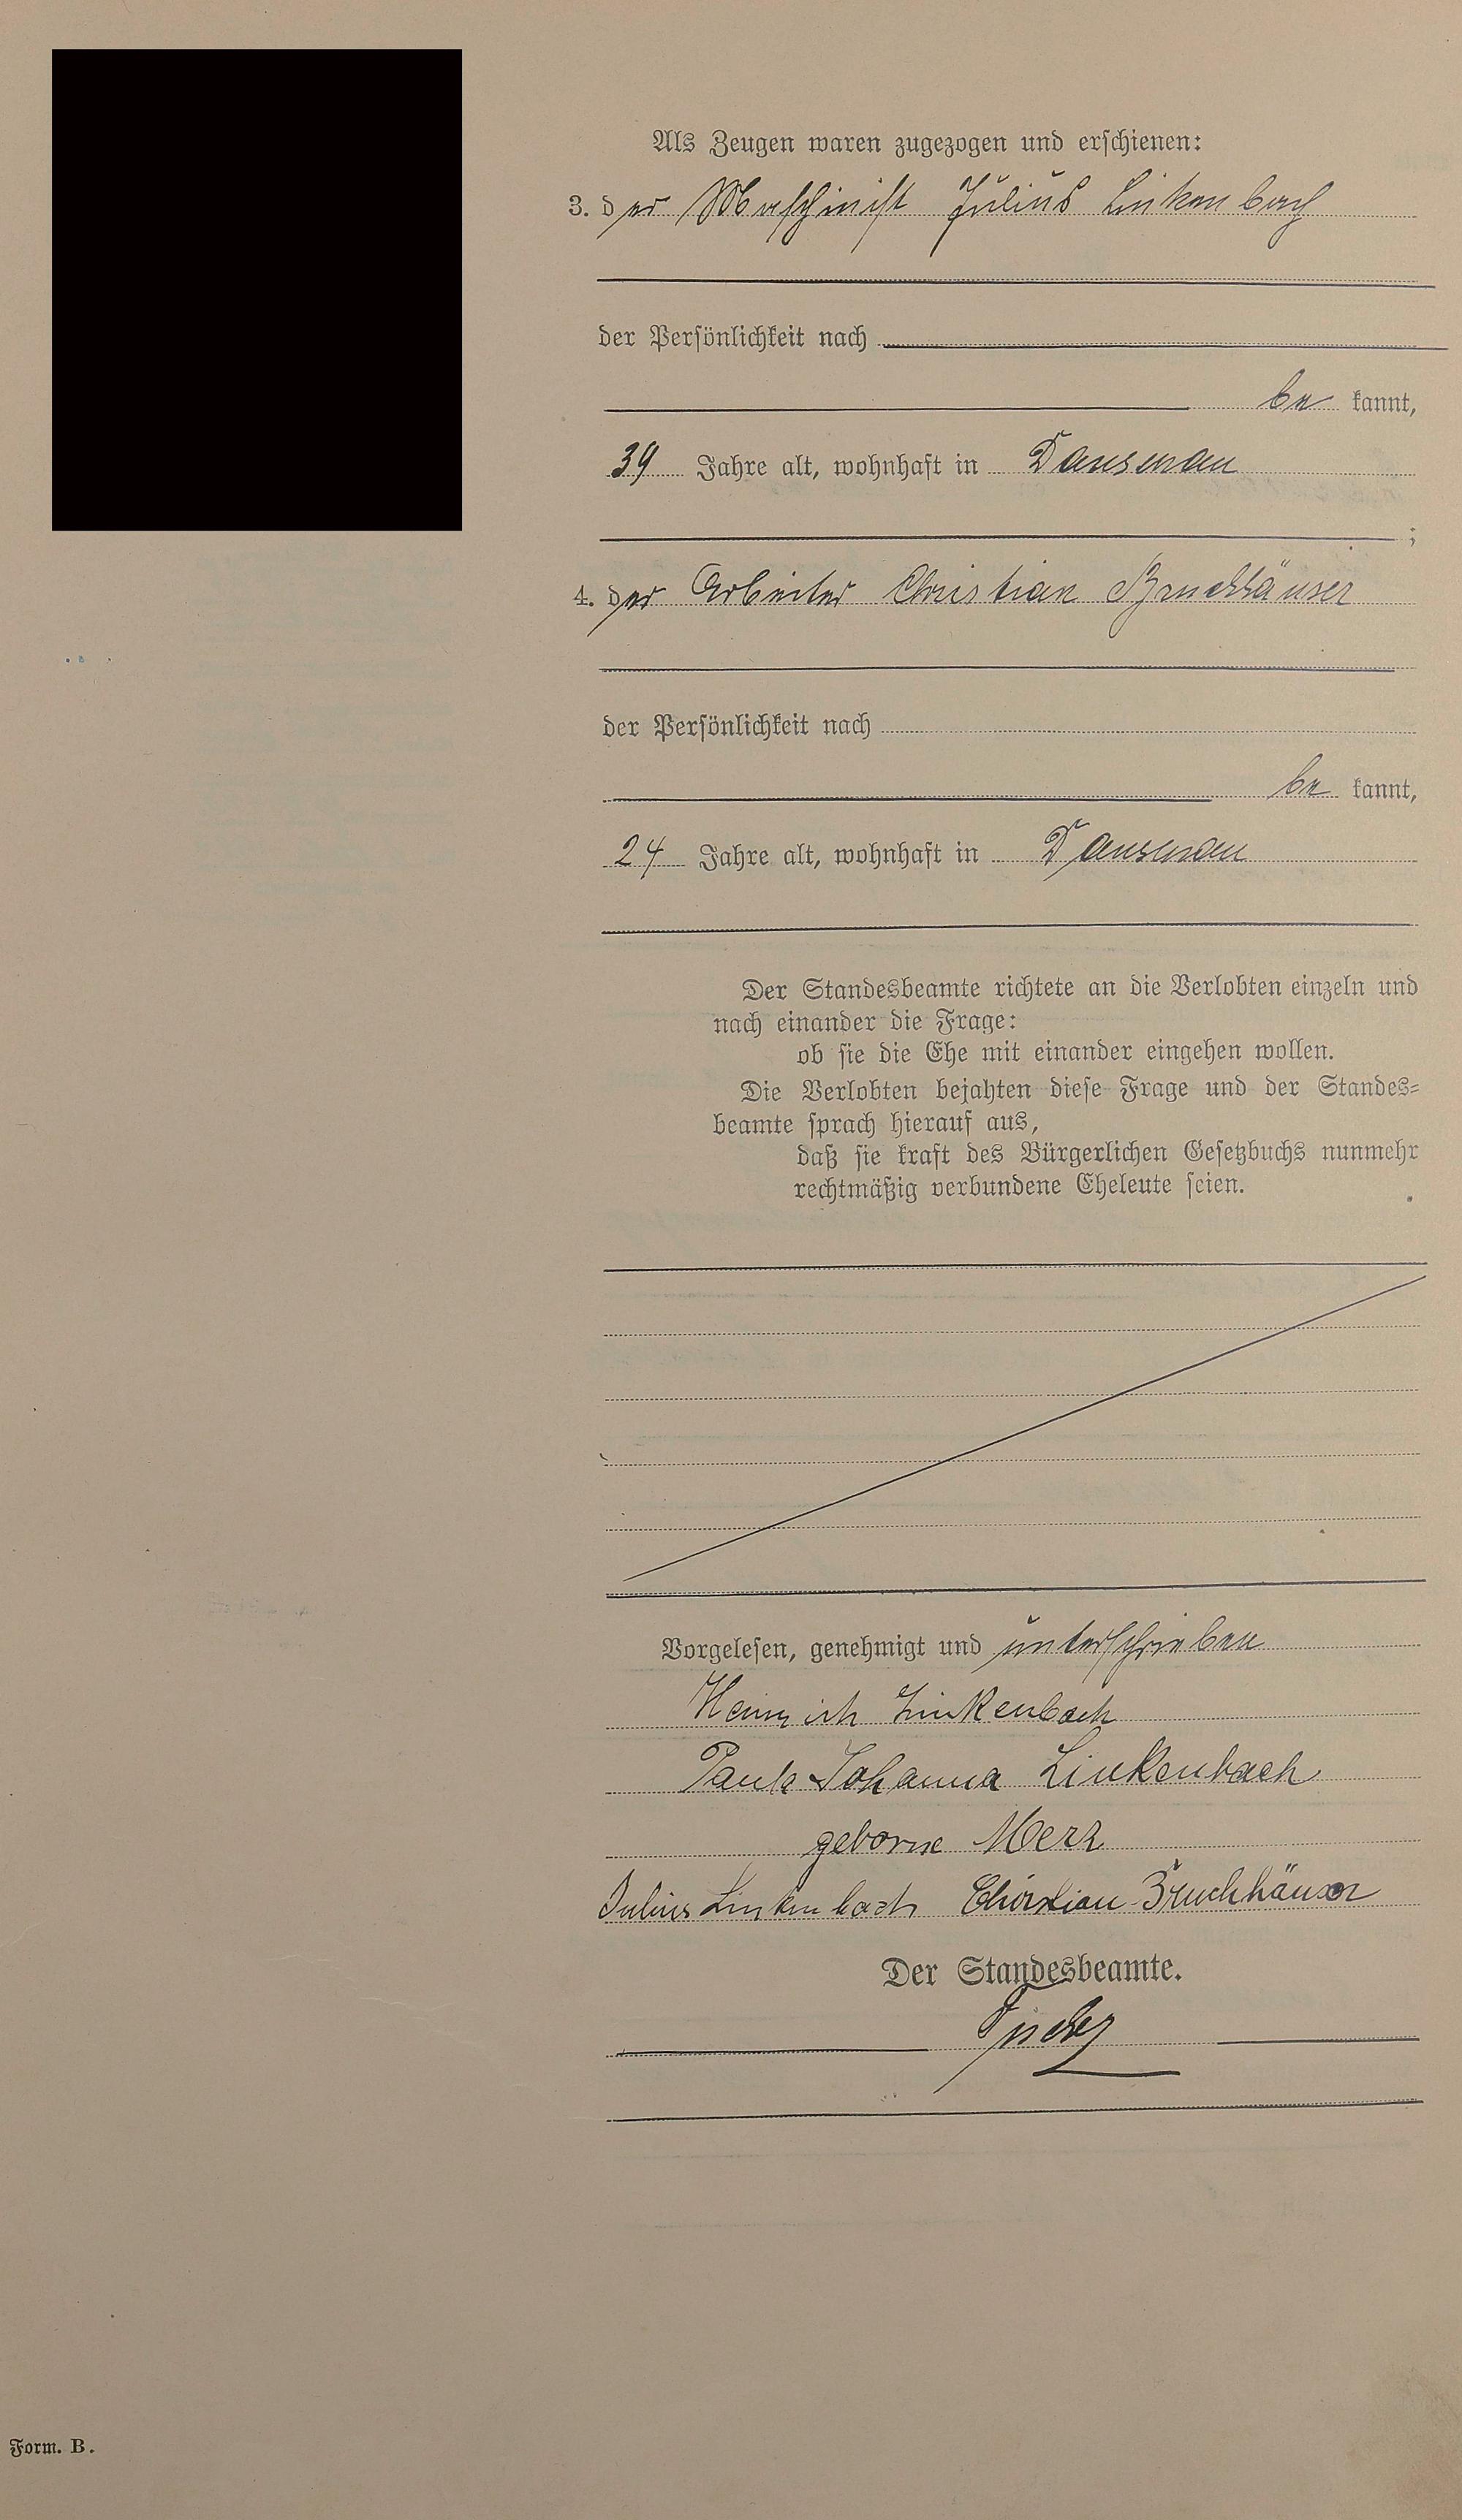 Als Zeugen waren zugezogen und erschienen:
3. der Maschinist Julius Linkenbach
der Persönlichkeit nach
be kannt,
39 Jahre alt, wohnhaft in Dausenau
;
4. der Arbeiter Christian Bruchhäuser
der Persönlichkeit nach
be kannt,
24 Jahre alt, wohnhaft in Dausenau
Der Standesbeamte richtete an die Verlobten einzeln und
nach einander die Frage:
ob sie die Ehe mit einander eingehen wollen.
Die Verlobten bejahten diese Frage und der Standes=
beamte sprach hierauf aus,
daß sie kraft des Bürgerlichen Gesetzbuchs nunmehr
rechtmäßig verbundene Eheleute seien.
Vorgelesen, genehmigt und unterschrieben
Heinrich Linkenbach
Paula Johanna Linkenbach
geborne Merz
Julius Linkenbach Christian Bruchhäuser
Der Standesbeamte.
Form. B.